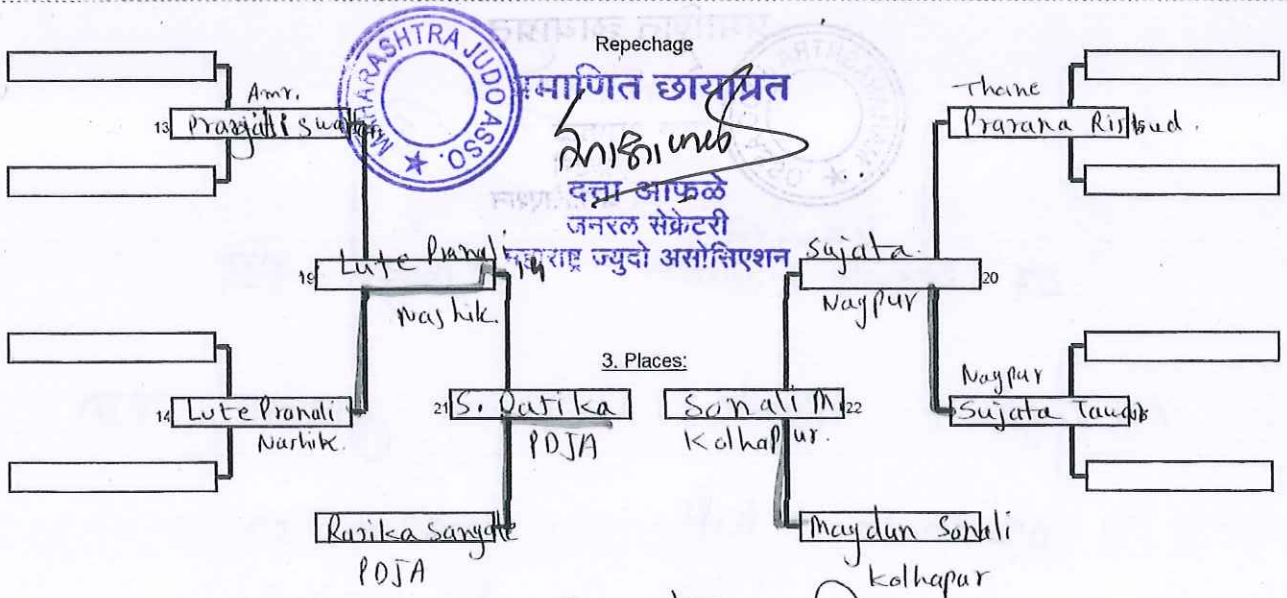 Repechage
MAHARASHTRA JUDO ASSO.
प्रमाणित छायाप्रत
दत्ता आफळे
जनरल सेक्रेटरी
महाराष्ट्र ज्युदो असोसिएशन
Amr.
13 Pranjali
Thane
Prarana Risbud.
19 Lute Pranali
Nashik.
Sujata 20
Nagpur
3. Places:
14 Lute Pranali
Nashik.
21 S. Rasika
PDJA
Sonali M. 22
Kolhapur.
Nagpur
Sujata
Rasika Sangale
PDJA
Maydun Sonali
Kolhapur